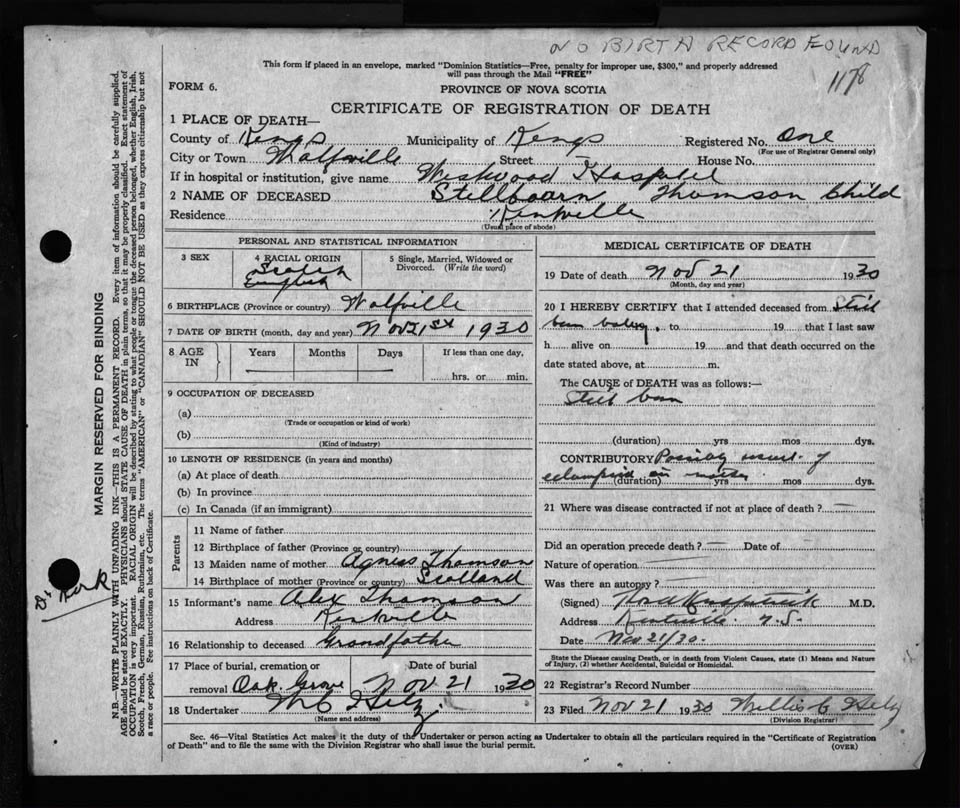 NO BIRTH RECORD FOUND
This form if placed in an envelope, marked "Dominion Statistics—Free, penalty for improper use, $300," and properly addressed
will pass through the Mail "FREE"
1178
FORM 6.
PROVINCE OF NOVA SCOTIA
CERTIFICATE OF REGISTRATION OF DEATH
1 PLACE OF DEATH—
County of Kings Municipality of Kings Registered No. One
(For use of Registrar General only)
City or Town Wolfville Street House No.
If in hospital or institution, give name Westwood Hospital
2 NAME OF DECEASED Stillbourn Thomson Child
Residence Kentville
(Usual place of abode)
PERSONAL AND STATISTICAL INFORMATION
3 SEX
4 RACIAL ORIGIN
Scotch
English
5 Single, Married, Widowed or
Divorced. (Write the word)
6 BIRTHPLACE (Province or country) Wolfville
7 DATE OF BIRTH (month, day and year) Nov 21st 1930
8 AGE IN
Years Months Days If less than one day,
hrs. or min.
9 OCCUPATION OF DECEASED
(a)
(Trade or occupation or kind of work)
(b)
(Kind of industry)
10 LENGTH OF RESIDENCE (in years and months)
(a) At place of death
(b) In province
(c) In Canada (if an immigrant)
Parents
11 Name of father
12 Birthplace of father (Province or country)
13 Maiden name of mother Agness Thomson
14 Birthplace of mother (Province or country) Scotland
15 Informant's name Alex Thomson
Address Kentville
16 Relationship to deceased Grandfather
17 Place of burial, cremation or Date of burial
removal Oak Grove Nov 21 1930
18 Undertaker W C Hely
(Name and address)
MEDICAL CERTIFICATE OF DEATH
19 Date of death Nov 21 1930
(Month, day and year)
20 I HEREBY CERTIFY that I attended deceased from Still
born baby, to 19 that I last saw
h alive on 19 and that death occurred on the
date stated above, at m.
The CAUSE of DEATH was as follows:—
Still born
(duration) yrs mos dys.
CONTRIBUTORY Possibly result of
eclampsia in mother
(duration) yrs mos dys.
21 Where was disease contracted if not at place of death?
Did an operation precede death? Date of
Nature of operation
Was there an autopsy?
(Signed) M.D.
Address Kentville N.S.
Date Nov 21/30.
State the Disease causing Death, or in death from Violent Causes, state (1) Means and Nature
of Injury, (2) whether Accidental, Suicidal or Homicidal.
22 Registrar's Record Number
23 Filed Nov 21 1930 Willis C Hely
(Division Registrar)
Sec. 46—Vital Statistics Act makes it the duty of the Undertaker or person acting as Undertaker to obtain all the particulars required in the "Certificate of Registration
of Death" and to file the same with the Division Registrar who shall issue the burial permit. (OVER)
MARGIN RESERVED FOR BINDING
N.B.—WRITE PLAINLY WITH UNFADING INK—THIS IS A PERMANENT RECORD. Every item of information should be carefully supplied.
AGE should be stated EXACTLY. PHYSICIANS should STATE CAUSE OF DEATH in plain terms, so that it may be properly classified. Exact statement of
OCCUPATION is very important. RACIAL ORIGIN will be described by stating to what people or tongue the deceased person belonged, whether English, Irish,
Scotch, French, German, Russian, Ruthenian, etc. The terms "AMERICAN" or "CANADIAN" SHOULD NOT BE USED as they express citizenship but not
a race or people. Fee instructions on back of Certificate.